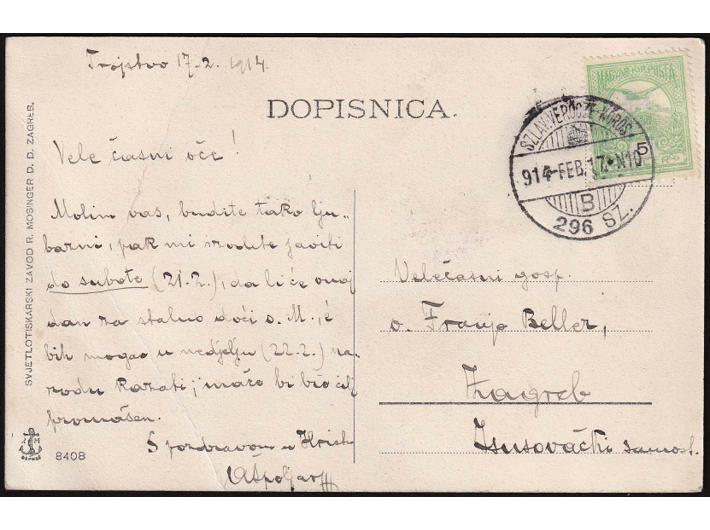 Trojstvo 17-2. 1914.
DOPISNICA.
MAGYAR KIR. POSTA
5
SZLAV. VERŐCZE-KŐRÖS
914-FEB. 17.*N10
B
296 SZ.
Vele časni oče!
Molim vas, budite tako lju-
bazni, pak mi izvolite javiti
do subote (21.2.), da li će onaj
dan za stalno doći o. M., e
bih mogao u nedjelju (22.2.) na-
rodu kazati; inače bi bio cilj
promašen.
S pozdravom u Hristu
Velečasni gosp.
o. Franjo Beller,
Zagreb
Isusovački samost.
SVJETLOTISKARSKI ZAVOD R. MOSINGER D. D. ZAGREB.
R M
8408